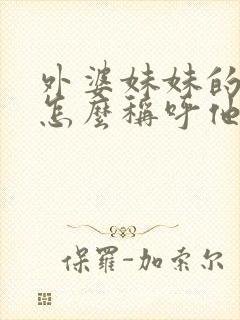 外婆妹妹的
怎麼稱呼他
保羅-加索尔